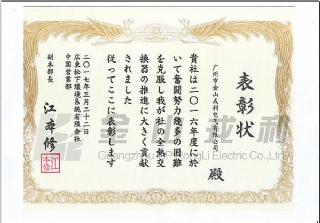 表彰状
広州市金山盛利电气有限公司
殿
貴社は二〇一六年度に於
いて奮闘努力幾多の困難
を克服し我が社の全熱交
換器の推進に大きく貢献
されました
従ってここに表彰します
二〇一七年三月二十二日
広東松下環境系統有限会社
中国営業部
副本部長
江本修